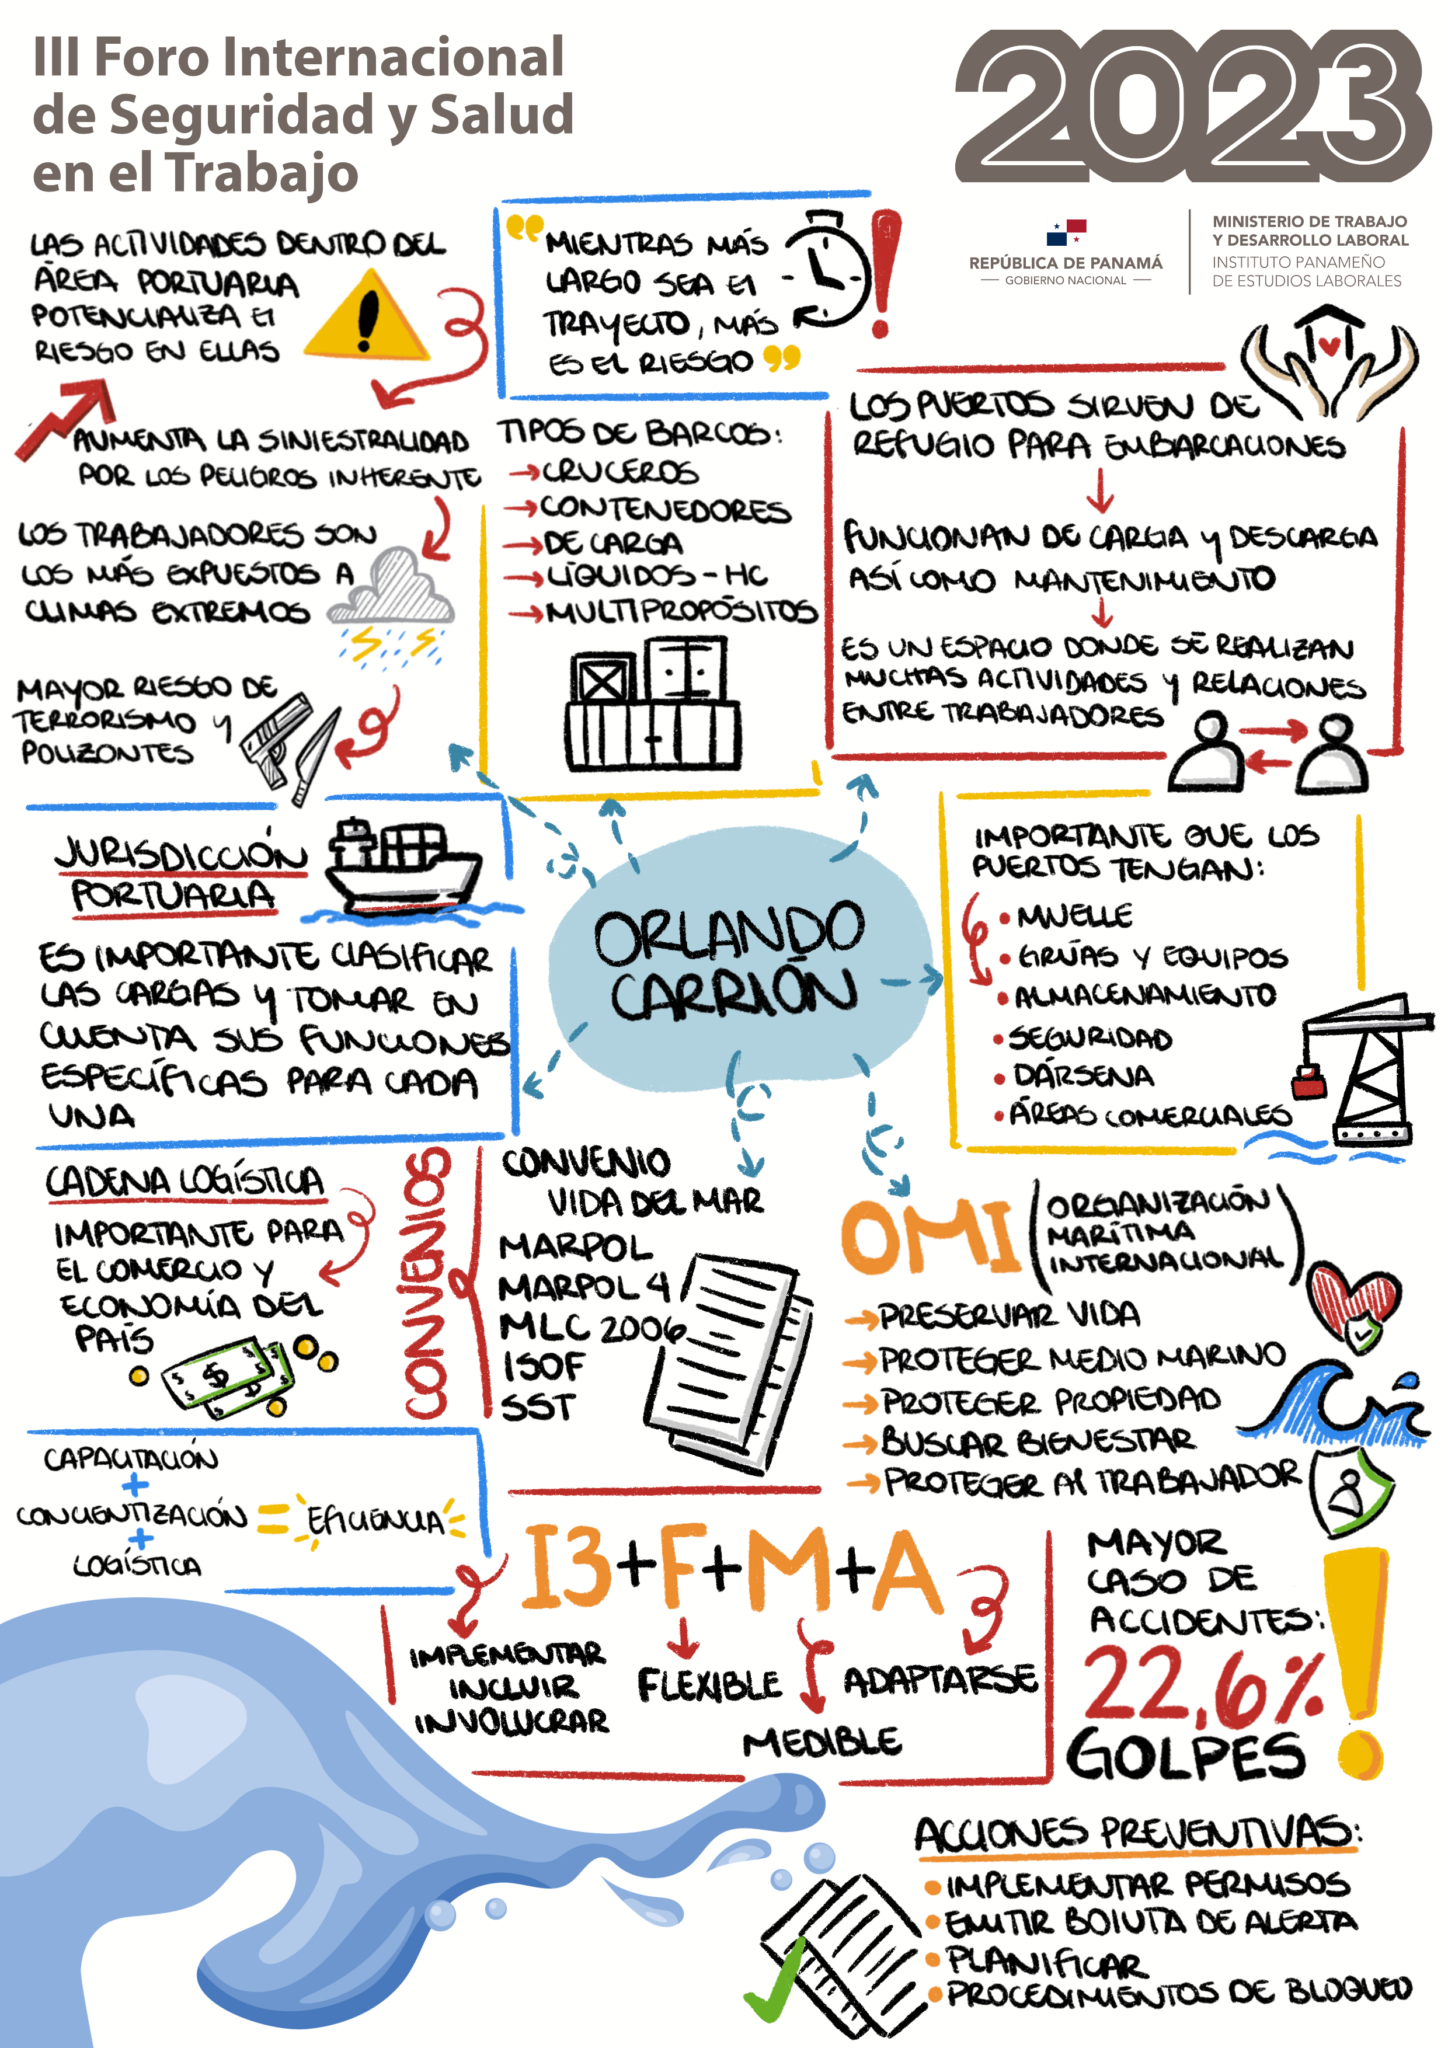 III Foro Internacional
de Seguridad y Salud
en el Trabajo
2023
REPÚBLICA DE PANAMÁ
— GOBIERNO NACIONAL —
MINISTERIO DE TRABAJO
Y DESARROLLO LABORAL
INSTITUTO PANAMEÑO
DE ESTUDIOS LABORALES
LAS ACTIVIDADES DENTRO DEL
ÁREA PORTUARIA
POTENCIALIZA El
RIESGO EN ELLAS
AUMENTA LA SINIESTRALIDAD
POR LOS PELIGROS INHERENTE
LOS TRABAJADORES SON
LOS MÁS EXPUESTOS A
CLIMAS EXTREMOS
MAYOR RIESGO DE
TERRORISMO Y
POLIZONTES
"MIENTRAS MÁS
LARGO SEA El
TRAYECTO, MÁS
ES EL RIESGO"
TIPOS DE BARCOS:
→ CRUCEROS
→ CONTENEDORES
→ DE CARGA
→ LÍQUIDOS - HC
→ MULTIPROPÓSITOS
LOS PUERTOS SIRVEN DE
REFUGIO PARA EMBARCACIONES
FUNCIONAN DE CARGA Y DESCARGA
ASÍ COMO MANTENIMIENTO
ES UN ESPACIO DONDE SE REALIZAN
MUCHAS ACTIVIDADES Y RELACIONES
ENTRE TRABAJADORES
JURISDICCIÓN
PORTUARIA
ES IMPORTANTE CLASIFICAR
LAS CARGAS Y TOMAR EN
CUENTA SUS FUNCIONES
ESPECÍFICAS PARA CADA
UNA
ORLANDO
CARRIÓN
IMPORTANTE QUE LOS
PUERTOS TENGAN:
• MUELLE
• GRÚAS Y EQUIPOS
• ALMACENAMIENTO
• SEGURIDAD
• DÁRSENA
• ÁREAS COMERCIALES
CADENA LOGÍSTICA
IMPORTANTE PARA
EL COMERCIO Y
ECONOMÍA DEL
PAÍS
CONVENIOS
CONVENIO
VIDA DEL MAR
MARPOL
MARPOL 4
MLC 2006
ISOF
SST
OMI (ORGANIZACIÓN
MARÍTIMA
INTERNACIONAL)
→ PRESERVAR VIDA
→ PROTEGER MEDIO MARINO
→ PROTEGER PROPIEDAD
→ BUSCAR BIENESTAR
→ PROTEGER Al TRABAJADOR
CAPACITACIÓN
+
CONCIENTIZACIÓN = EFICIENCIA
+
LOGÍSTICA
I3+F+M+A
IMPLEMENTAR
INCLUIR
INVOLUCRAR
FLEXIBLE
MEDIBLE
ADAPTARSE
MAYOR
CASO DE
ACCIDENTES:
22,6%
GOLPES
ACCIONES PREVENTIVAS:
• IMPLEMENTAR PERMISOS
• EMITIR BOlUTA DE ALERTA
• PLANIFICAR
• PROCEDIMIENTOS DE BLOQUEO